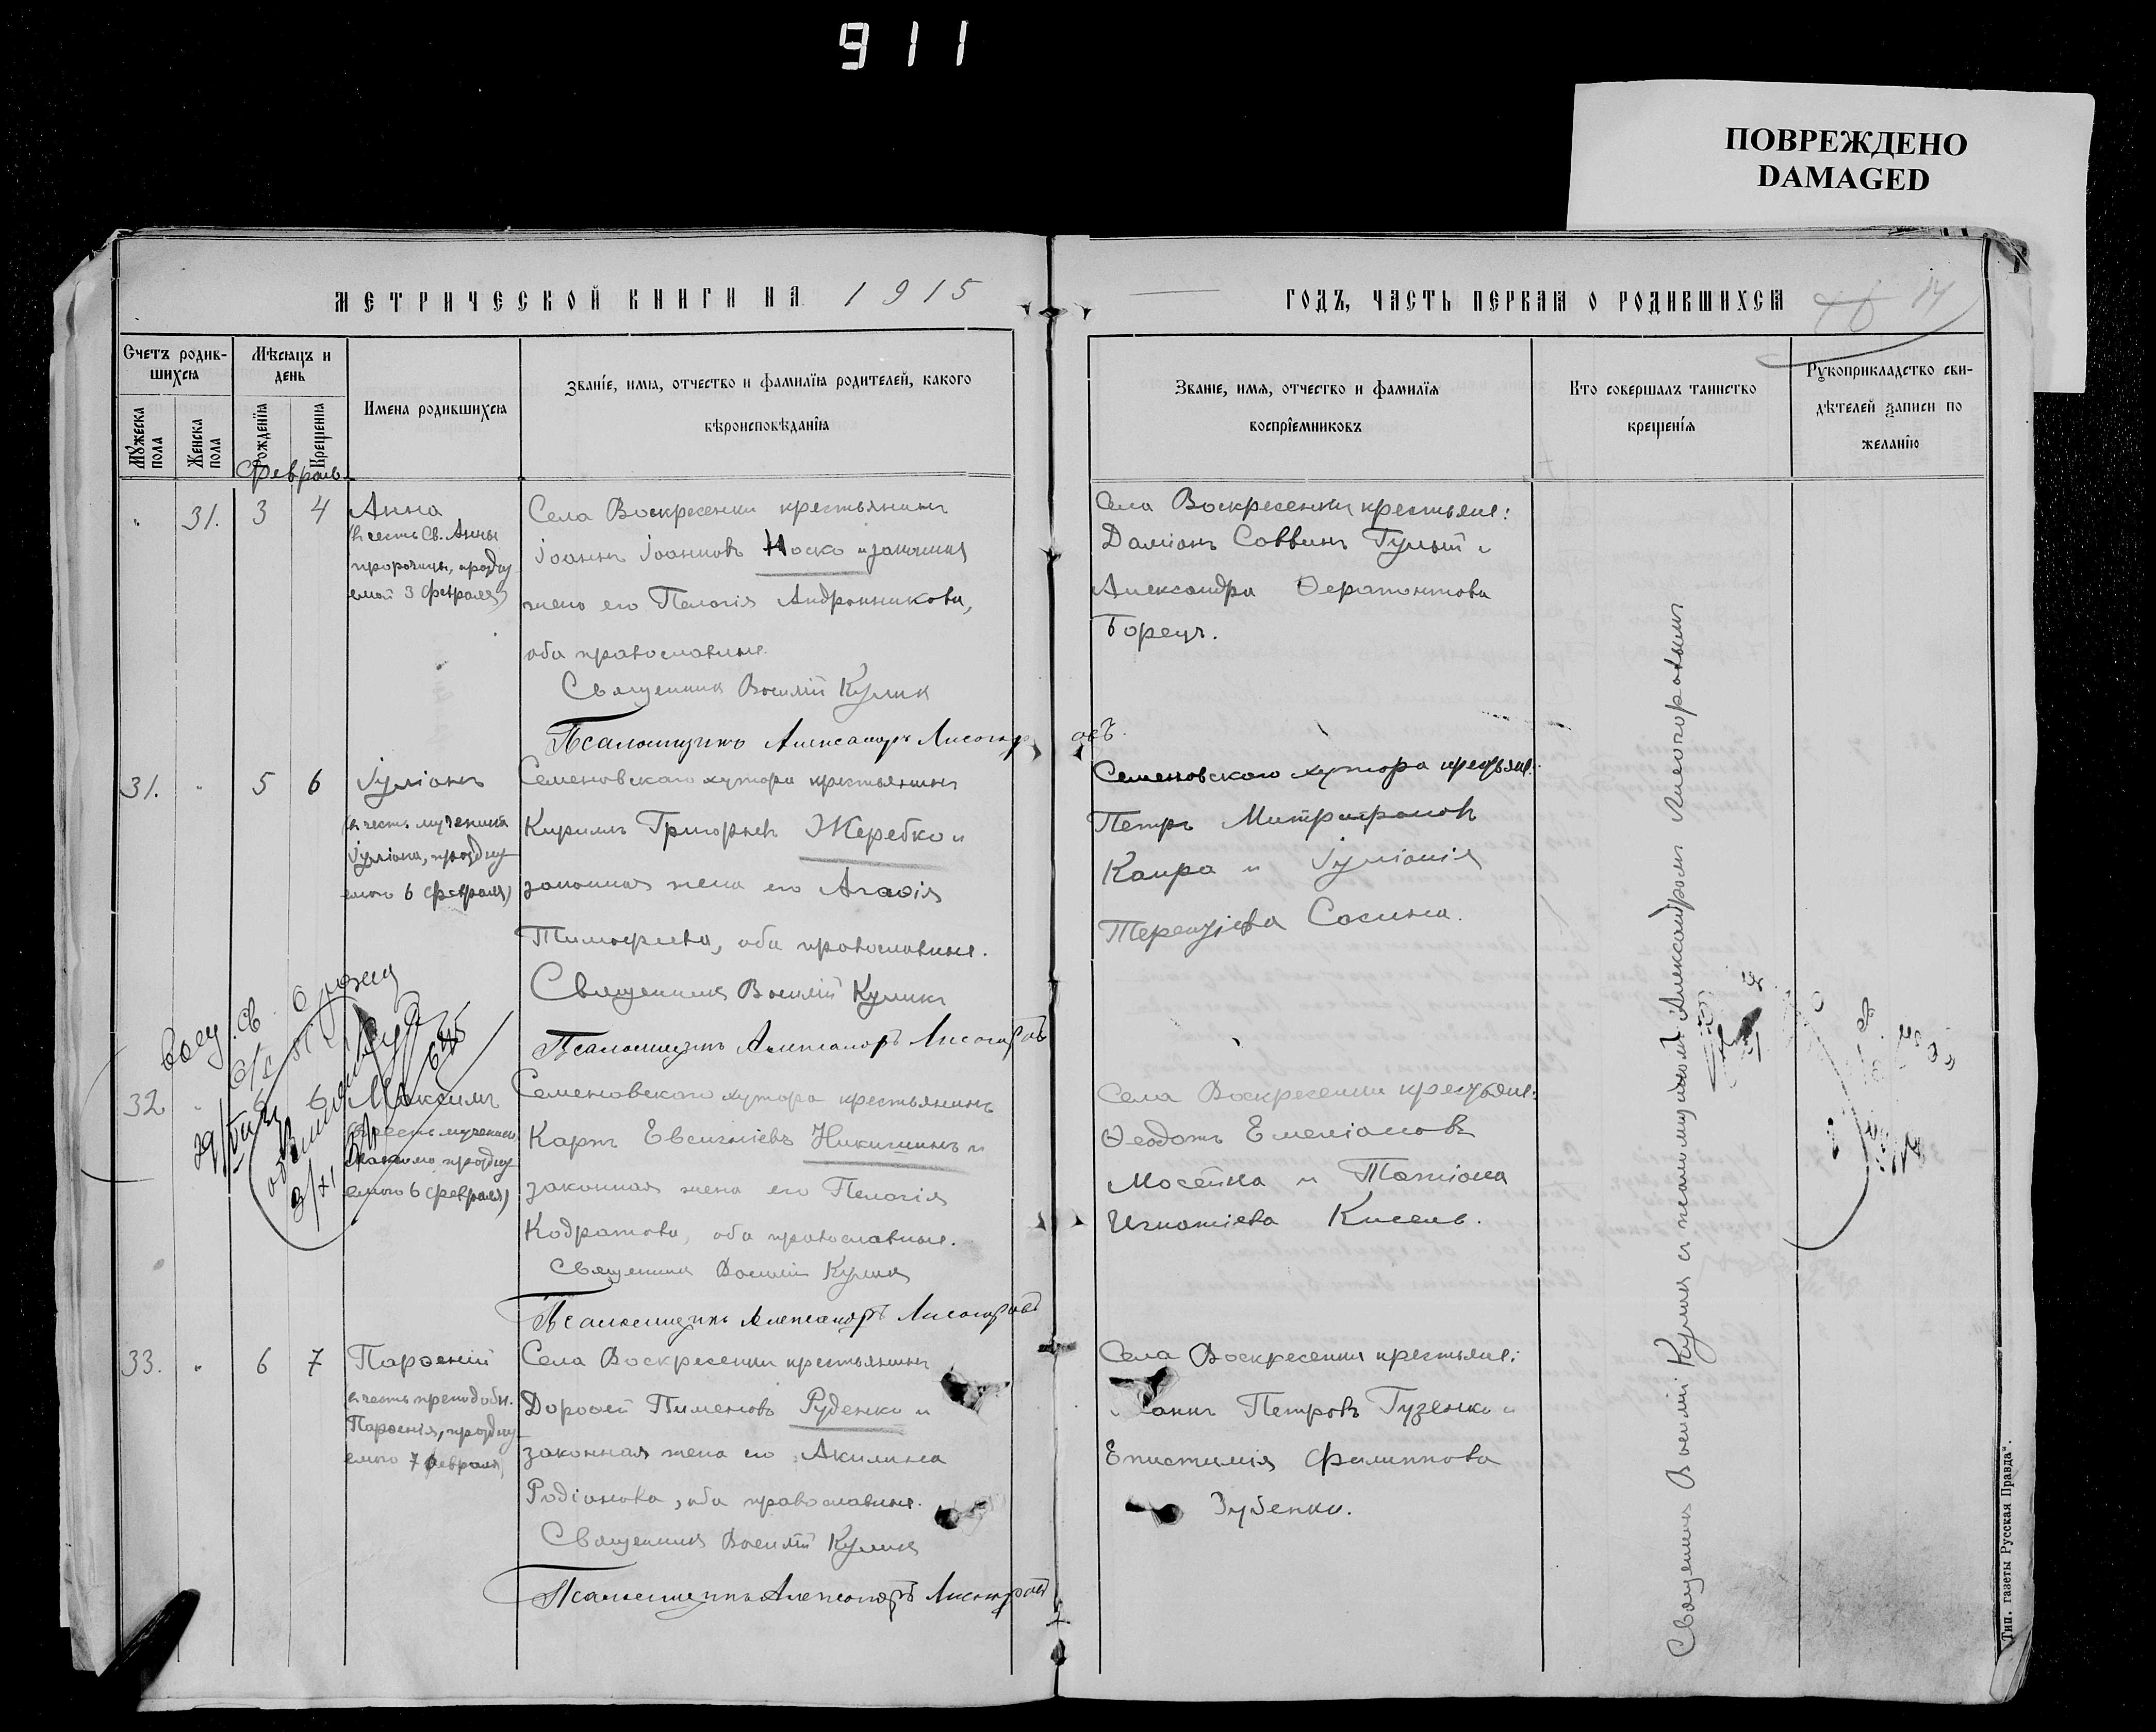 911
ПОВРЕЖДЕНО
DAMAGED
МЕТРИЧЕСКОЙ КНИГИ НА 1915
ГОДЪ, ЧАСТЬ ПЕРВАЯ О РОДИВШИХСЯ
14
Счетъ родив-
шихся
Мужеска пола
Женска пола
Мѣсяцъ и
день
Рожденія
Крещенія
Имена родившихся
Званіе, имя, отчество и фамилія родителей, какого
вѣроисповѣданія
Званіе, имя, отчество и фамилія
воспріемниковъ
Кто совершалъ таинство
крещенія
Рукоприкладство сви-
дѣтелей записи по
желанію
Февраль
31. 3 4 Анна
(в честь Св. Анны
пророчицы, праздну
емой 3 февраля)
Села Воскресенки крестьянинъ
Іоаннъ Іоанновъ Носко и законная
жена его Пелагія Андронникова,
оба православные.
Священникъ Василій Куликъ
Псаломщикъ Александръ Лисогоровъ
Села Воскресенки крестьяне:
Даміанъ Саввинъ Гулый и
Александра Ѳерапонтова
Борецъ.
31. 5 6 Іуліанъ
(в честь мученика
Іуліана, праздну
емаго 6 февраля)
Семеновскаго хутора крестьянинъ
Кириллъ Григорьевъ Жеребко и
законная жена его Агаѳія
Тимофеева, оба православные.
Священникъ Василій Куликъ
Псаломщикъ Александръ Лисогоровъ
Семеновскаго хутора крестьяне:
Петръ Митрофановъ
Капра и Іуліанія
Терентіева Сосина.
32 6 6 Максимъ
в честь мученика
Максима праздну
емаго 6 февраля)
Семеновскаго хутора крестьянинъ
Карпъ Евсигніевъ Никишинъ и
законная жена его Пелагія
Кодратова, оба православные.
Священникъ Василій Куликъ
Псаломщикъ Александръ Лисогоровъ
Села Воскресенки крестьяне:
Ѳеодотъ Емеліановъ
Мосейка и Татіана
Игнатіева Кисель.
33. 6 7 Парѳеній
в честь преподобн.
Парѳенія, праздну
емаго 7 февраля)
Села Воскресенки крестьянинъ
Дороѳей Пименовъ Руденко и
законная жена его Акилина
Родіонова, оба православные.
Священникъ Василій Куликъ
Псаломщикъ Александръ Лисогоровъ
Села Воскресенки крестьяне:
Іоаннъ Петровъ Гузенко и
Епистимія Филиппова
Зубенко.
Священникъ Василій Куликъ съ псаломщикомъ Александромъ Лисогоровымъ
Тип. газеты „Русская Правда".